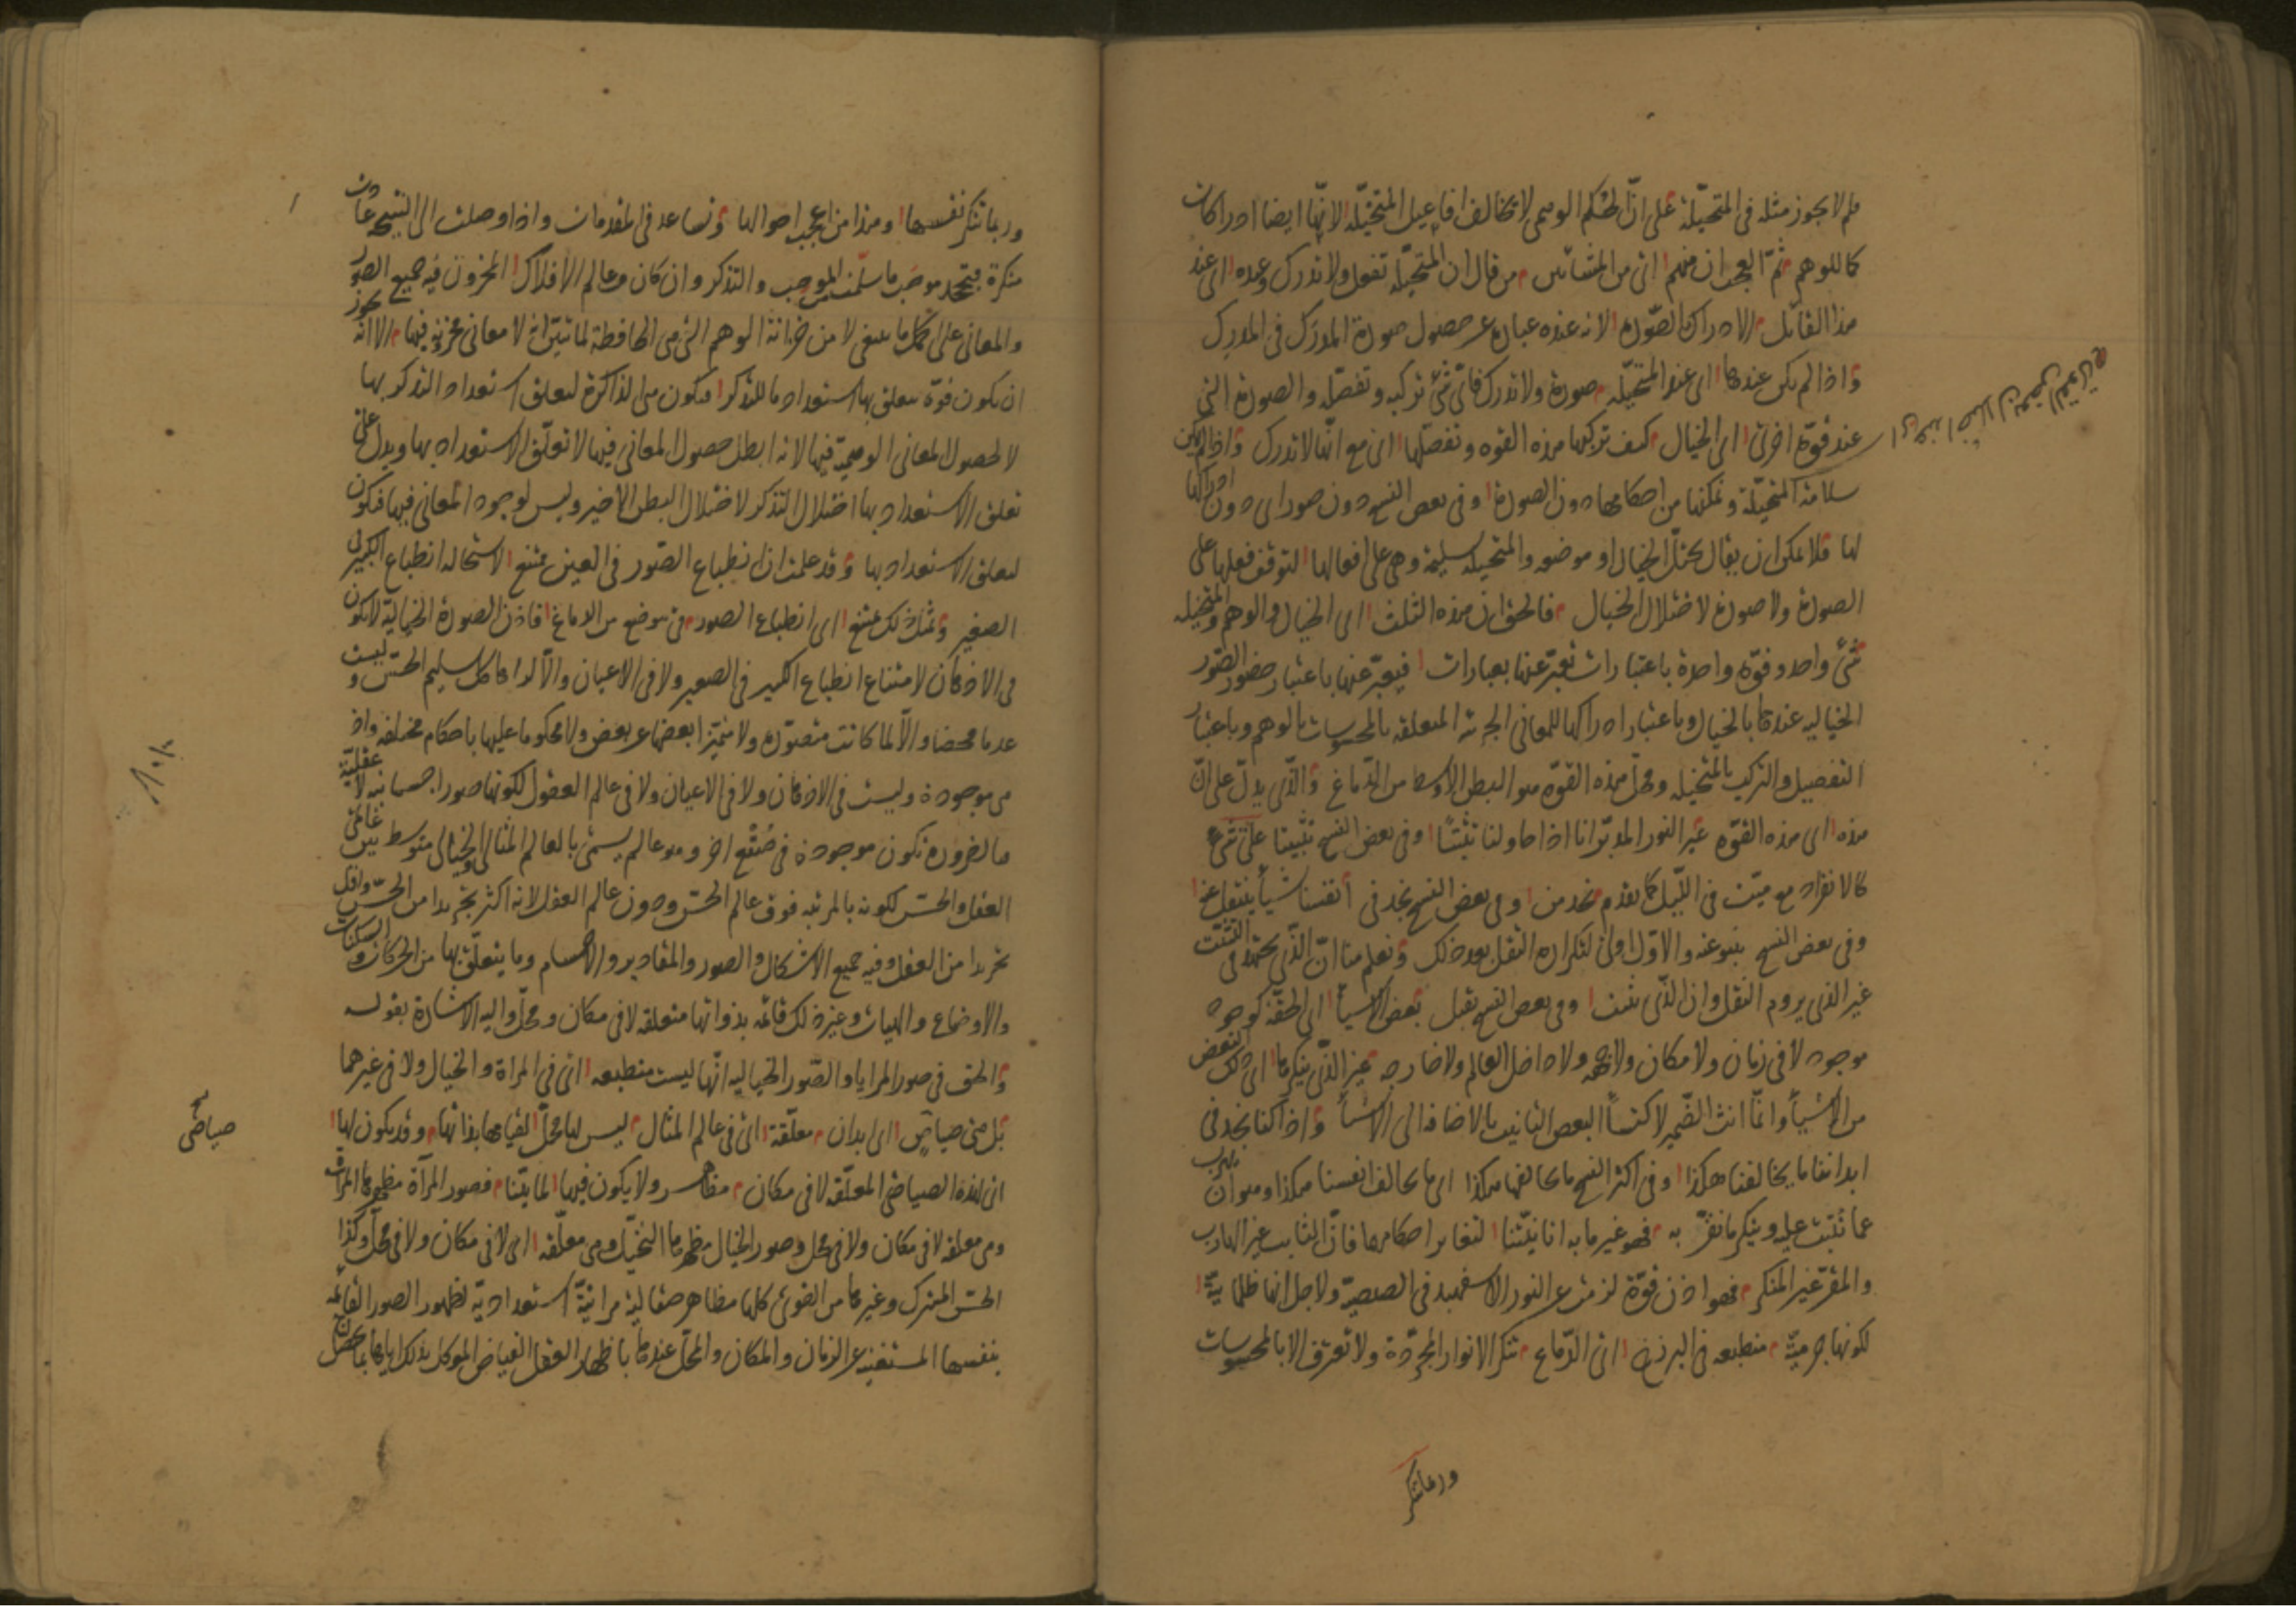 فلم لا يجوز مثله فى المتخيّلة على انّ الحكم الوهمى لا يخالف افاعيل المتخيّلة لانّها ايضا ادراكات
كما للوهم ثمّ العجب ان منهم اى من المشائين من قال ان المتخيّلة تفعل ولا تدرك وعنده اى عند
هذا القائل الادراك بالصّورة لانه عنده عبارة عن حصول صورة المدرك فى المدرك
و اذا لم يكن عندها اى عند المتخيّلة صورة ولا تدرك فاىّ شئ تركبه وتفصّله والصورة التى
عند قوّة اخرى اى الخيال كيف تركبها هذه القوه وتفصّلها اى مع انّها لا تدرك و اذا لم يكن
سلامة المتخيّلة وتمكنها من احكامها دون الصورة وفى بعض النسخ دون صور اى دون ادراكها
لها فلا يمكن ان يقال يختلّ الخيال او موضعه والمتخيله سليمة وهى على افعالها لتوقف فعلها على
الصورة ولا صورة لاختلال الخيال فالحق ان هذه الثلث اى الخيال والوهم والمتخيله
شئ واحد وقوّة واحدة باعتبارات تعبّر عنها بعبارات فيعبّر عنها باعتبار حضور الصّور
الخياليه عندها بالخيال وباعتبار ادراكها للمعانى الجزئيه المتعلقه بالمحسوسات بالوهم وباعتبار
التفصيل والتركيب بالمتخيله ومحلّ هذه القوّه هو البطن الاوسط من الدّماغ والذّى يدلّ على انّ
هذه اى هذه القوّه غير النور المدبّر انا اذا حاولنا تثبّتًا وفى بعض النسخ تثبيتا على شئ
كالانفراد مع ميّت فى اللّيل كما تقدم نجد من وفى بعض النسخ نجد فى انفسنا شيأ ينتقل عنه
وفى بعض النسخ ينبو عنه والاوّل اولى لتكراره النقل بعد ذلك و نعلم منا انّ الذّى يجتهد فى التثبّت
غير الذى يروم النقل وان الذّى يثبت وفى بعض النسخ يقبل بعض الاشيأ اى الحقّة كوجود
موجود لا فى زمان ولا مكان ولا جهه ولا داخل العالم ولا خارجه غير الذّى ينكرها اى تلك البعض
من الاشيأ وانّما انث الضّمير لاكتسأ البعض التانيث بالاضافه الى الاشيأ و اذا كنا نجد فى
ابداننا ما يخالفنا هكذا وفى اكثر النسخ ما يخالفها هكذا اى ما يخالف انفسنا هكذا وهو ان يهرب
عما نثبت عليه وينكر ما نقرّ به فهو غير ما به انانيّتنا لتغاير احكامها فانّ الثابت غير الهارب
والمقرّ غير المنكر فهو اذن قوّة لزمت عن النور الاسفهبد فى الصيصيّة ولاجل انها ظلمانيّة
لكونها جرميّة منطبعه فى البرزخ اى الدّماغ تنكر الانوار المجرّدة ولا تعترف الا بالمحسوسات
وربما تنكر
وربما تنكر نفسها وهذا من اعجب احوالها و تساعد فى المقدمات واذا وصلت الى النتيجه عادت
منكرة فتجحد موجب ما سلّمت من الموجب والتذكر وان كان من عالم الافلاك المخزون فيه جميع الصور
والمعانى على ما ينبغى لا من خزانة الوهم التى هى الحافظة لما تبيّن انه لا معانى مخزونه فيها الا انه يجوز
ان يكون قوّة يتعلق بها استعداد ما للتذكر فيكون هى الذاكرة لتعلق استعداد التذكر بها
لا لحصول المعانى الوهميّة فيها لانه ابطل حصول المعانى فيها لا تعلّق الاستعداد بها ويدل على
تعلق الاستعداد بها اختلال التذكر لاختلال البطن الاخير وليس لوجود المعانى فيها فيكون
لتعلق الاستعداد بها و قد علمت ان انطباع الصّور فى العين ممتنع لاستحاله انطباع الكبير فى
الصغير و كذلك يمتنع اى انطباع الصور فى موضع من الدماغ فاذن الصورة الخياليّة لا يكون
فى الاذهان لامتناع انطباع الكبير فى الصغير ولا فى الاعيان والّا لراها كل سليم الحسّ وليست
عدما محضا والّا لما كانت متصوّرة ولا متميّزا بعضها عن بعض ولا محكوما عليها باحكام مختلفه واذ
هى موجودة وليست فى الاذهان ولا فى الاعيان ولا فى عالم العقول لكونها صورا جسمانيه لا عقليّة
فبالضروره تكون موجودة فى صقع اخر وهو عالم يسمّى بالعالم المثالى والخيالى متوسط بين عالمى
العقل والحسّ لكونه بالمرتبه فوق عالم الحسّ ودون عالم العقل لانه اكثر تجريدا من الحسّ واقل
تجريدا من العقل وفيه جميع الاشكال والصور والمقادير والاجسام وما يتعلّق بها من الحركات والسكنات
والاوضاع والهيات وغير ذلك قائمه بذواتها متعلقه لا فى مكان ومحلّ واليه الاشارة بقوله
و الحق فى صور المرايا والصّور الخياليه انّها ليست منطبعه اى فى المراة والخيال ولا فى غيرهما
بل هى صياصٍ اى ابدان معلّقة اى فى عالم المثال ليس لها محلّ لقيامها بذاتها وقد يكون لها
اى لهذه الصياصى المعلّقه لا فى مكان مظاهر ولا يكون فيها لما بيّنا فصور المرآة مظهرها المرآة
وهى معلقه لا فى مكان ولا فى محل وصور الخيال مظهرها التخيّل وهى معلّقه اى لا فى مكان ولا فى محلّ وكذا
الحسّ المشترك وغيرها من القوى كلها مظاهر صقالية مرائيّة استعداديّة لظهور الصور القائمه
بنفسها المستغنيه عن الزمان والمكان والمحلّ عندها باظهار العقل الفياض الموكل بذلك اياها
صياصى